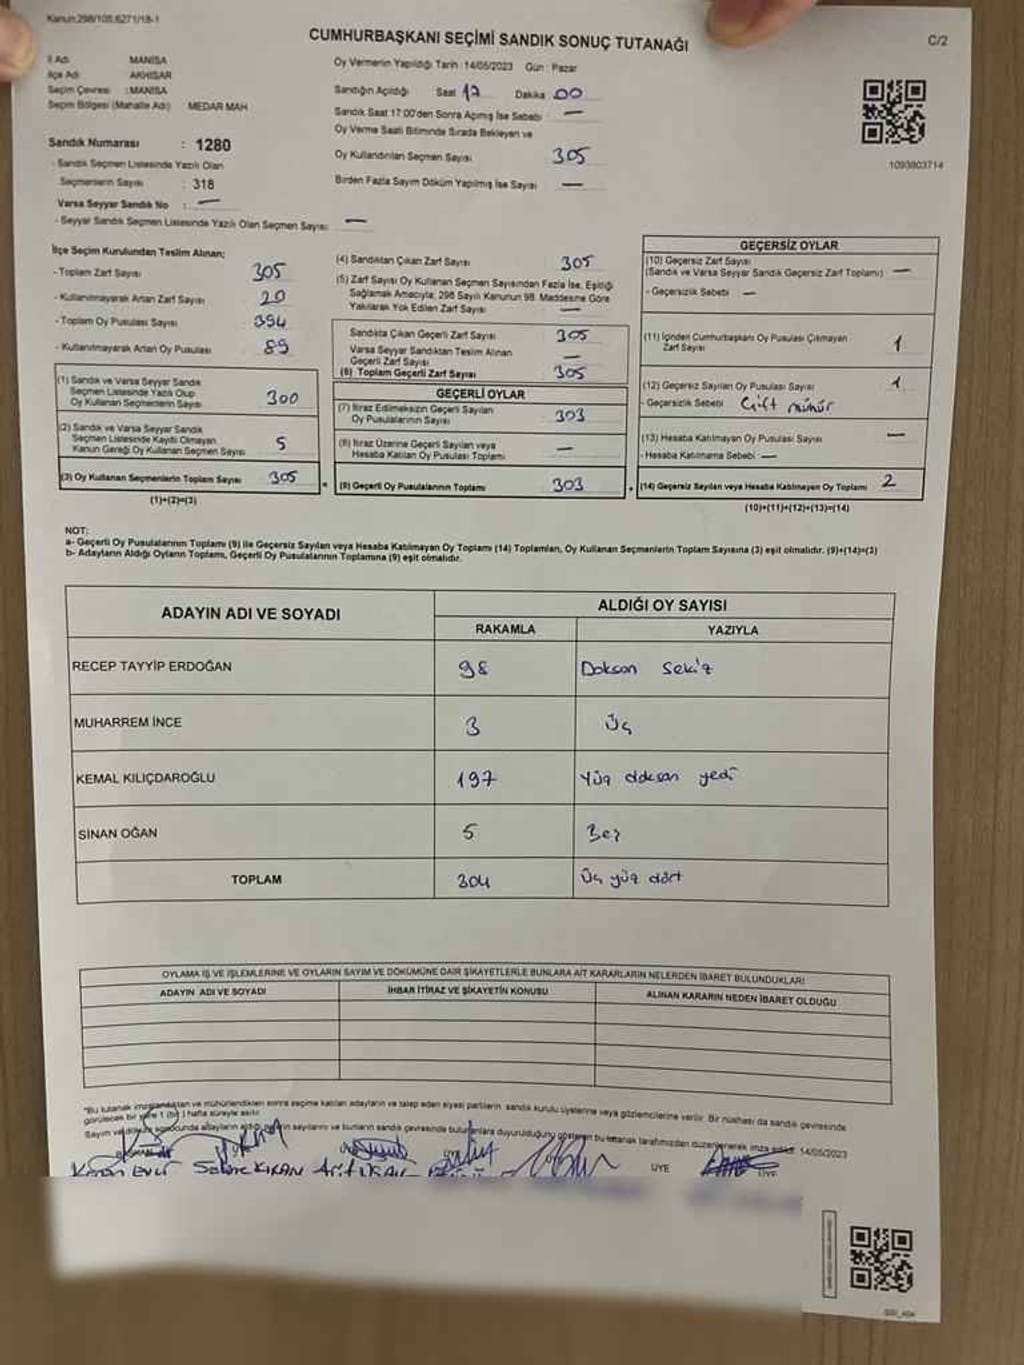 Kanun:298/105,6271/18-1
CUMHURBAŞKANI SEÇİMİ SANDIK SONUÇ TUTANAĞI
C/2
İl Adı MANİSA
İlçe Adı AKHİSAR
Seçim Çevresi : MANİSA
Seçim Bölgesi (Mahalle Adı) MEDAR MAH
Sandık Numarası : 1280
- Sandık Seçmen Listesinde Yazılı Olan
Seçmenlerin Sayısı : 318
Varsa Seyyar Sandık No : —
- Seyyar Sandık Seçmen Listesinde Yazılı Olan Seçmen Sayısı: —
Oy Vermenin Yapıldığı Tarih : 14/05/2023 Gün : Pazar
Sandığın Açıldığı Saat 17 Dakika 00
Sandık Saat 17:00'den Sonra Açımış İse Sebebi —
Oy Verme Saati Bitiminde Sırada Bekleyen ve
Oy Kullandırılan Seçmen Sayısı 305
Birden Fazla Sayım Döküm Yapılmış İse Sayısı —
1093803714
İlçe Seçim Kurulundan Teslim Alınan;
- Toplam Zarf Sayısı 305
- Kullanılmayarak Artan Zarf Sayısı 20
- Toplam Oy Pusulası Sayısı 394
- Kullanılmayarak Artan Oy Pusulası 89
(1) Sandık ve Varsa Seyyar Sandık
Seçmen Listesinde Yazılı Olup
Oy Kullanan Seçmenlerin Sayısı 300
(2) Sandık ve Varsa Seyyar Sandık
Seçmen Listesinde Kayıtlı Olmayan
Kanun Gereği Oy Kullanan Seçmen Sayısı 5
(3) Oy Kullanan Seçmenlerin Toplam Sayısı 305
(1)+(2)=(3)
(4) Sandıktan Çıkan Zarf Sayısı 305
(5) Zarf Sayısı Oy Kullanan Seçmen Sayısından Fazla İse, Eşitliği
Sağlamak Amacıyla; 298 Sayılı Kanunun 98. Maddesine Göre
Yakılarak Yok Edilen Zarf Sayısı —
Sandıkta Çıkan Geçerli Zarf Sayısı 305
Varsa Seyyar Sandıktan Teslim Alınan
Geçerli Zarf Sayısı —
(6) Toplam Geçerli Zarf Sayısı 305
GEÇERLİ OYLAR
(7) İtiraz Edilmeksizin Geçerli Sayılan
Oy Pusulalarının Sayısı 303
(8) İtiraz Üzerine Geçerli Sayılan veya
Hesaba Katılan Oy Pusulası Toplamı —
= (9) Geçerli Oy Pusulalarının Toplamı 303
GEÇERSİZ OYLAR
(10) Geçersiz Zarf Sayısı
(Sandık ve Varsa Seyyar Sandık Geçersiz Zarf Toplamı) —
- Geçersizlik Sebebi —
(11) İçinden Cumhurbaşkanı Oy Pusulası Çıkmayan
Zarf Sayısı 1
(12) Geçersiz Sayılan Oy Pusulası Sayısı 1
- Geçersizlik Sebebi Çift mühür
(13) Hesaba Katılmayan Oy Pusulası Sayısı —
- Hesaba Katılmama Sebebi —
+ (14) Geçersiz Sayılan veya Hesaba Katılmayan Oy Toplamı 2
(10)+(11)+(12)+(13)=(14)
NOT:
a- Geçerli Oy Pusulalarının Toplamı (9) ile Geçersiz Sayılan veya Hesaba Katılmayan Oy Toplamı (14) Toplamları, Oy Kullanan Seçmenlerin Toplam Sayısına (3) eşit olmalıdır. (9)+(14)=(3)
b- Adayların Aldığı Oyların Toplamı, Geçerli Oy Pusulalarının Toplamına (9) eşit olmalıdır.
ADAYIN ADI VE SOYADI ALDIĞI OY SAYISI
RAKAMLA YAZIYLA
RECEP TAYYİP ERDOĞAN 98 Doksan Sekiz
MUHARREM İNCE 3 Üç
KEMAL KILIÇDAROĞLU 197 Yüz doksan yedi
SİNAN OĞAN 5 Beş
TOPLAM 304 Üç yüz dört
OYLAMA İŞ VE İŞLEMLERİNE VE OYLARIN SAYIM VE DÖKÜMÜNE DAİR ŞİKAYETLERLE BUNLARA AİT KARARLARIN NELERDEN İBARET BULUNDUKLARI
ADAYIN ADI VE SOYADI İHBAR İTİRAZ VE ŞİKAYETİN KONUSU ALINAN KARARIN NEDEN İBARET OLDUĞU
*Bu tutanak imzalandıktan ve mühürlendikten sonra seçime katılan adayların ve talep eden siyasi partilerin sandık kurulu üyelerine veya gözlemcilerine verilir. Bir nüshası da sandık çevresinde
görülecek bir yere 1 (bir) hafta süreyle asılır.
Sayım ve döküm sonucunda adayların aldığı oyların sayılarını ve bunların sandık çevresinde bulunanlara duyurulduğunu gösteren bu tutanak tarafımızdan düzenlenerek imza edildi. 14/05/2023
KIRAN
ÜYE ÜYE